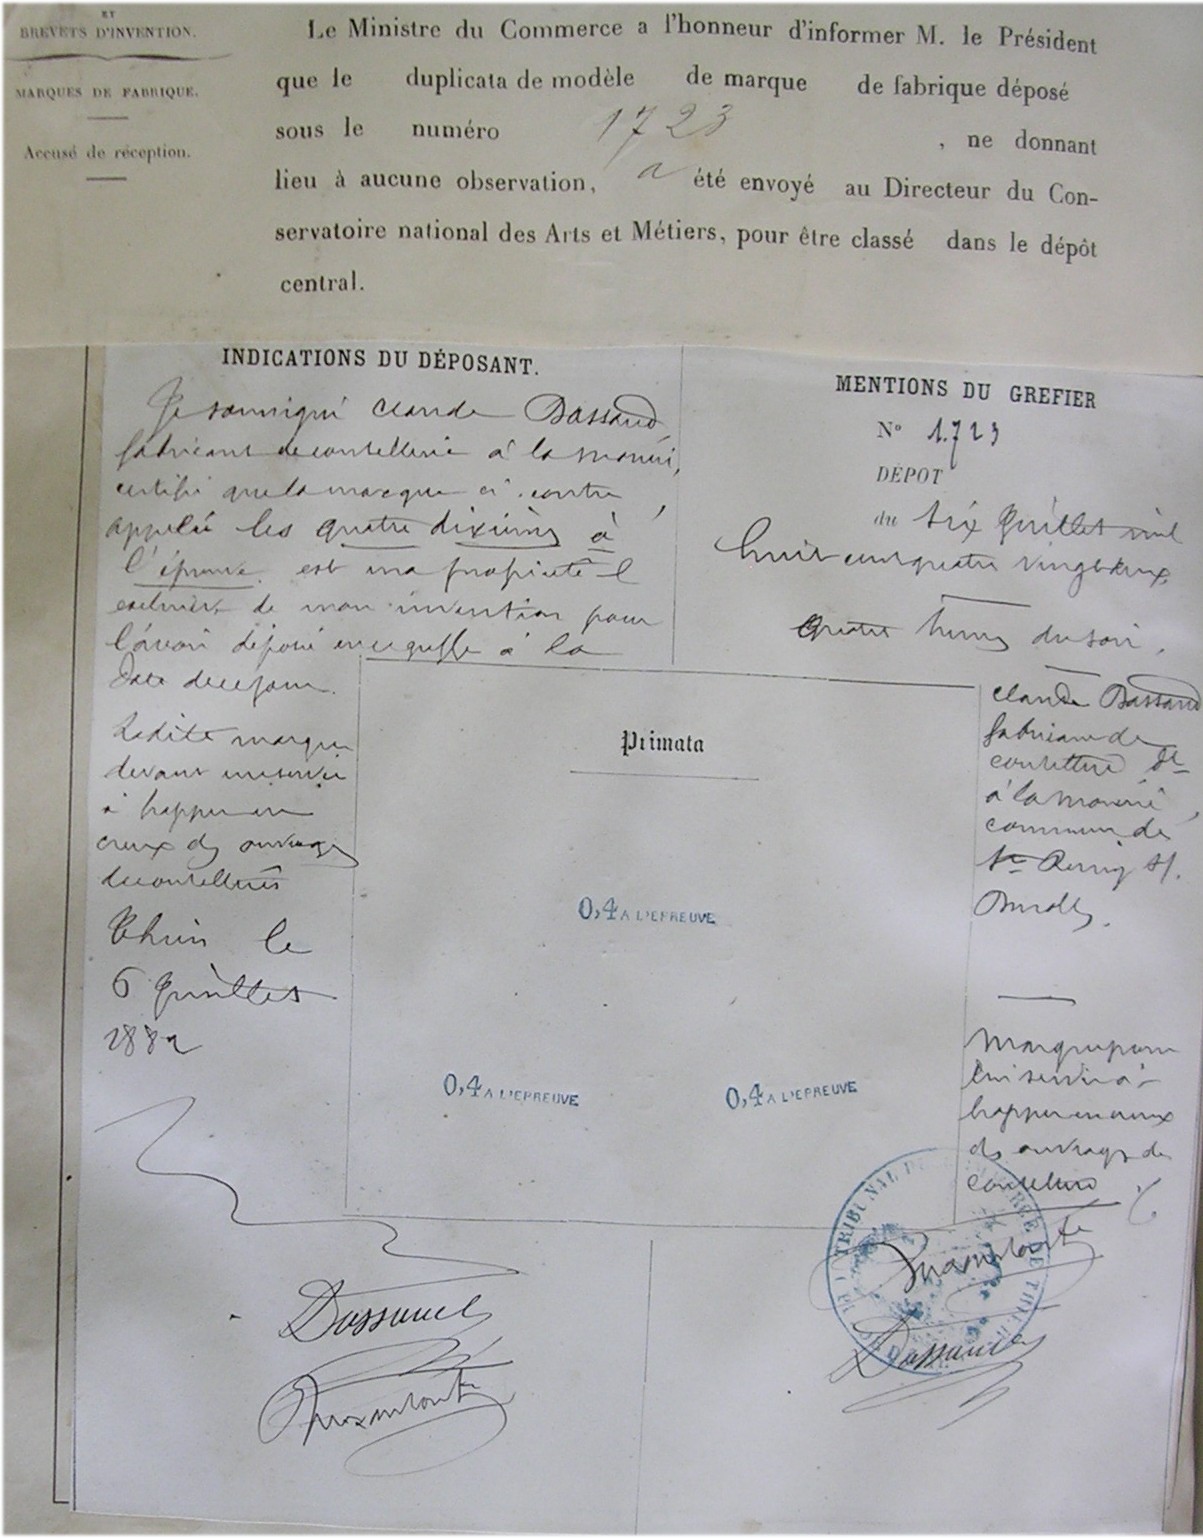 ET
BREVETS D'INVENTION.
MARQUES DE FABRIQUE.
Accusé de réception.
Le Ministre du Commerce a l'honneur d'informer M. le Président
que le duplicata de modèle de marque de fabrique déposé
sous le numéro 1723 , ne donnant
lieu à aucune observation, a été envoyé au Directeur du Con-
servatoire national des Arts et Métiers, pour être classé dans le dépôt
central.
INDICATIONS DU DÉPOSANT.
Je soussigné Claude Dassaud
fabricant de coutellerie à la monnerie,
certifie que la marque ci-contre
appelée les quatre dixièmes à
l'épreuve est ma propriété
exclusive de mon invention pour
l'avoir déposé en ce greffe à la
date de ce jour.
Ladite marque
devant me servir
à frapper en
creux des ouvrages
de coutelleries
Thiers le
6 Juillet
1882
Dassaud
MENTIONS DU GREFIER
No 1.723
DÉPOT
du six Juillet mil
huit cent quatre vingt deux
quatre heures du soir.
Claude Dassaud
fabricant de
coutellerie dt
à la monnerie,
commune de
St Remy s/.
Durolle.
Marque pour
lui servir à
frapper en creux
des ouvrages de
coutellerie
Primata
0,4 A L'EPREUVE
0,4 A L'EPREUVE
0,4 A L'EPREUVE
TRIBUNAL DE COMMERCE DE THIERS
Dassaud